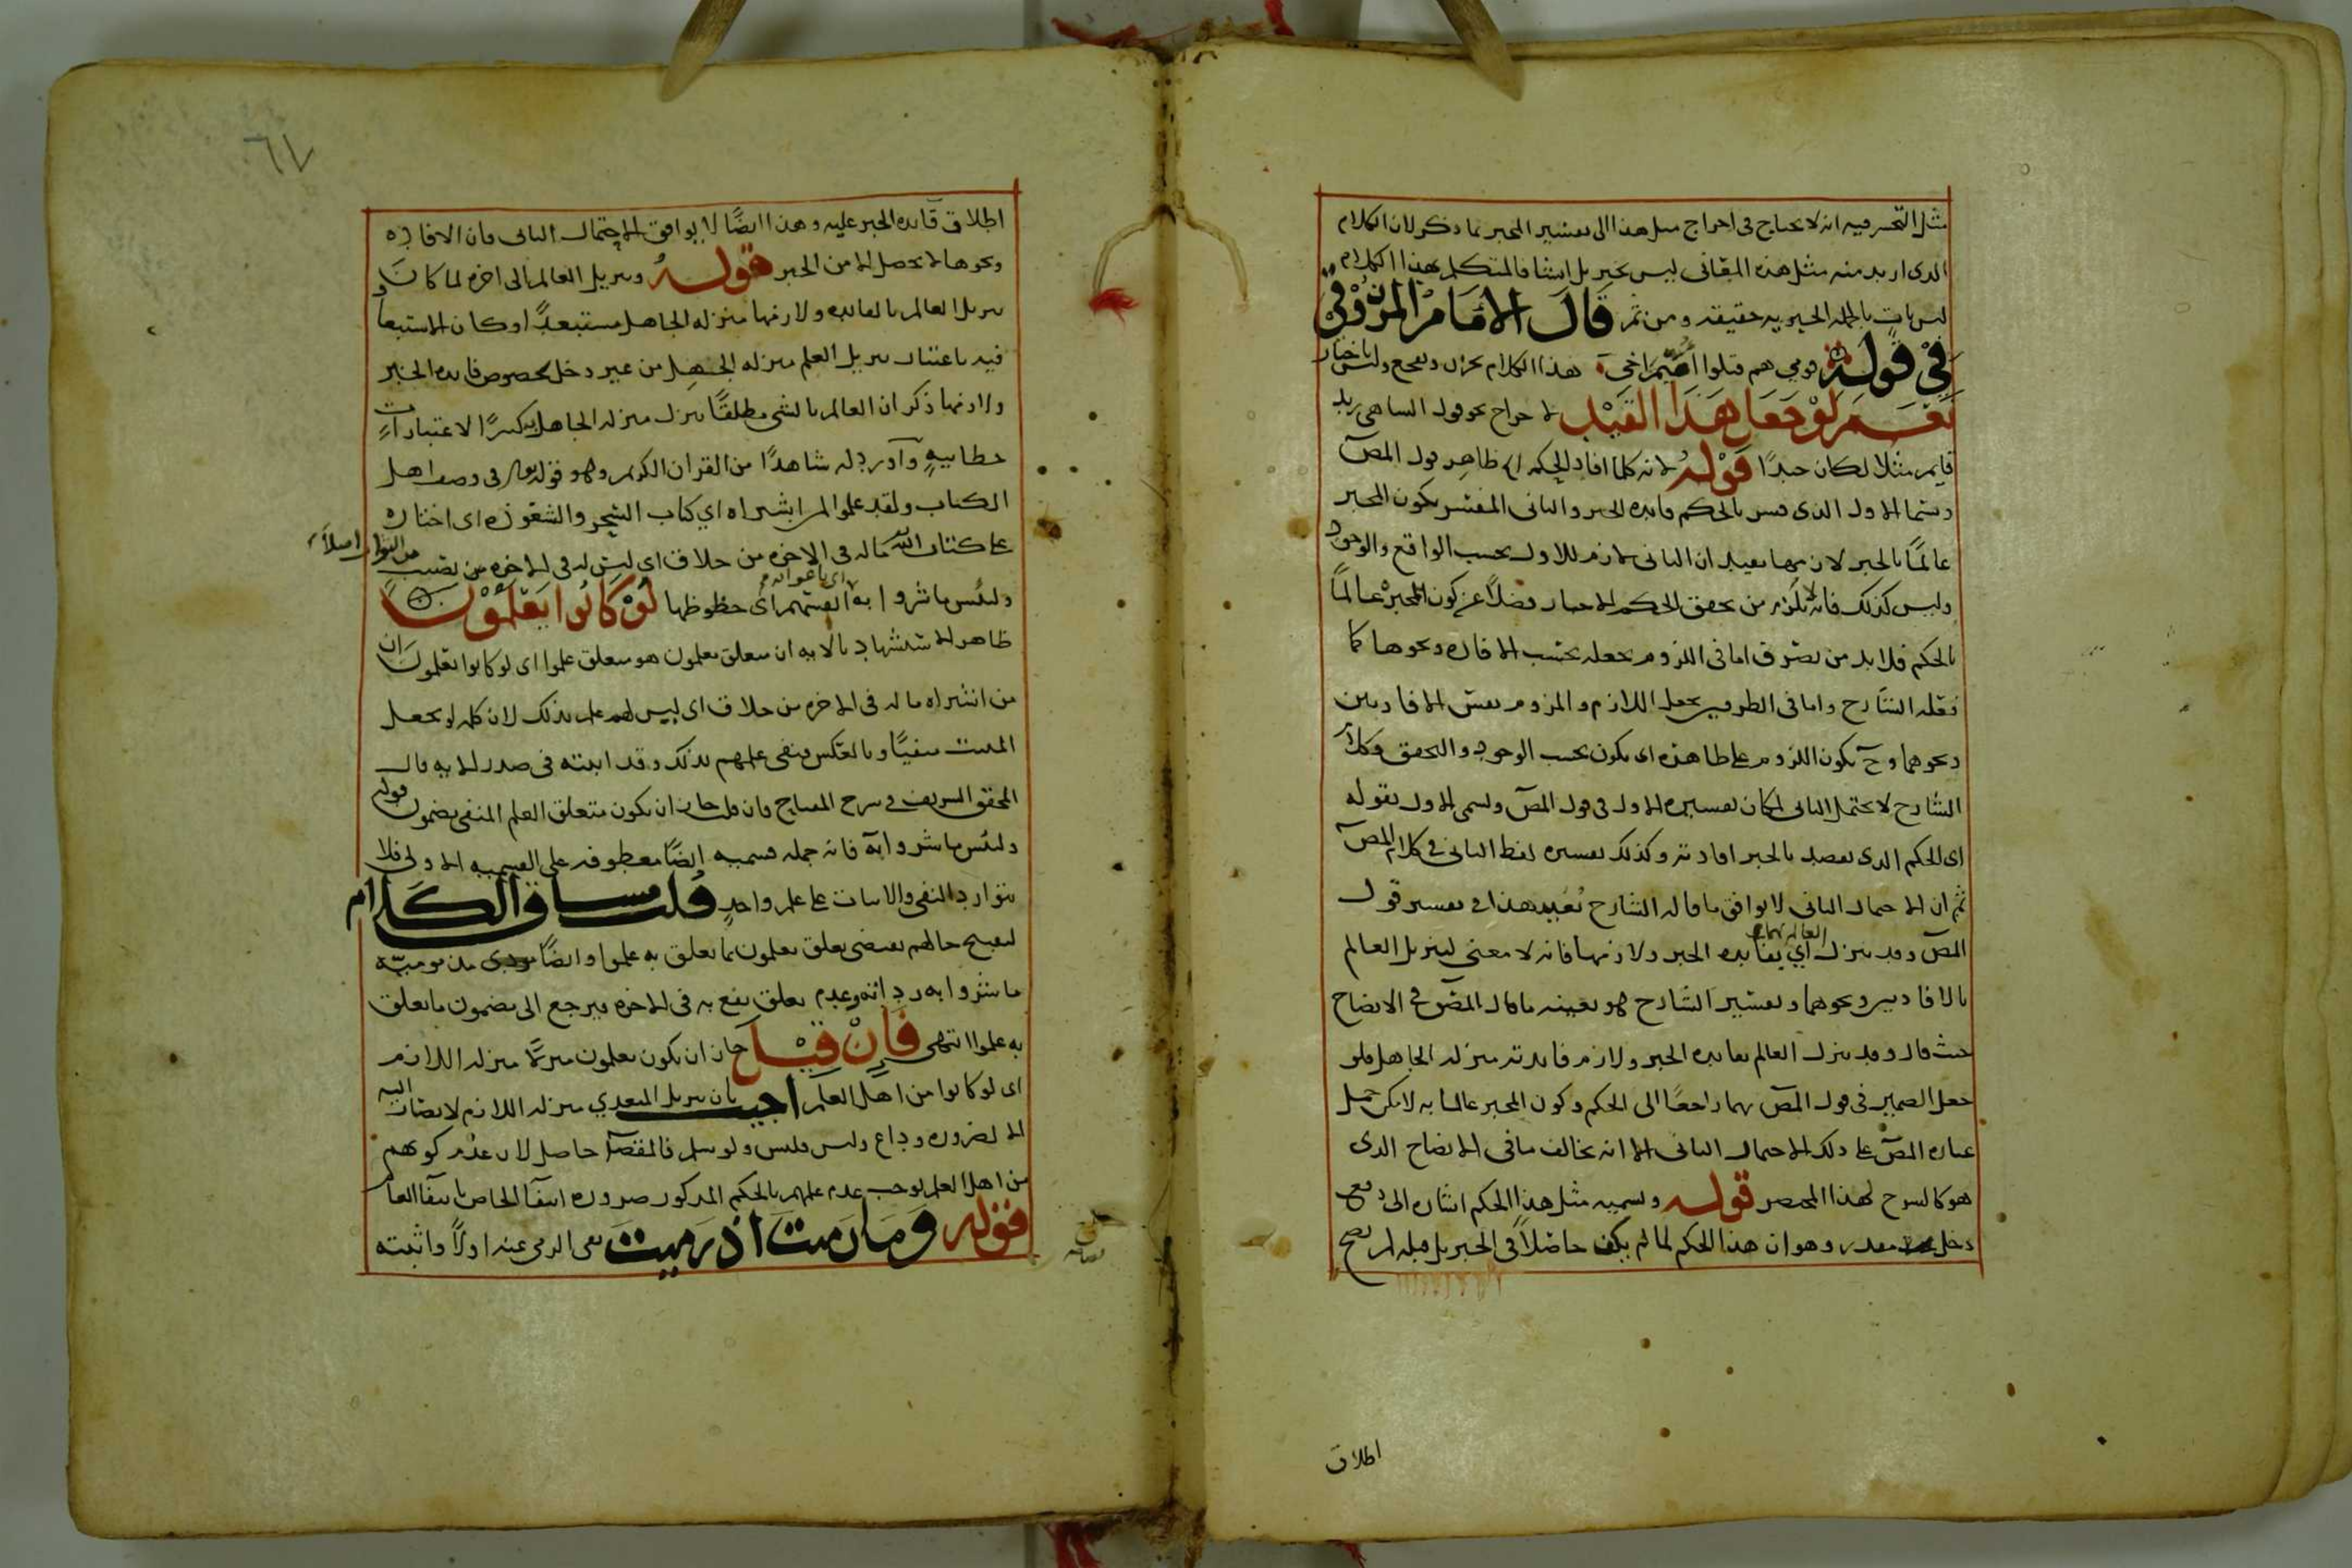 مثل التحسر فيه انه لا يحتاج فى اخراج مثل هذا الى تفسير المخبر بما ذكر لان الكلام
الذى اريد منه مثل هذه المعانى ليس بخبر بل انشا فالمتكلم بهذا الكلام
ليس بات بالجمله الخبريه حقيقه ومن ثم قال الامام المرزوقى
فى قوله قومي هم قتلوا اميم اخى هذا الكلام تحزن وتفجع وليس باخبار
نعم لو جعل هذا القيد لاخراج نحو قول الساهى زيد
قايم مثلا لكان جيدا قوله لانه كلما افاد الحكم الخ ظاهر قول المص
وسمى الاول الذى فسر بالحكم فايده الخبر والثانى المفسر بكون المخبر
عالما بالخبر لازمها يفيد ان الثانى لازم للاول بحسب الواقع والوجود
وليس كذلك فانه لا يلزم من تحقق الحكم الاخبار فضلا عن كون المخبر عالما
بالحكم فلا بد من تصرف اما فى اللزوم بجعله بحسب الافاده ونحوها كما
فعله الشارح واما فى الطرفين بجعل اللازم والملزوم نفس الافادتين
ونحوهما وح يكون اللزوم على ظاهره اى يكون بحسب الوجود والتحقق وكلام
الشارح لا يحتمل الثانى لمكان تفسيره الاول فى قول المص ويسمى الاول بقوله
اى الحكم الذى يقصد بالخبر افادته وكذلك تفسيره لفظ الثانى فى كلام المص
ثم ان الاحتمال الثانى لا يوافق ما قاله الشارح بعيد هذا فى تفسير قول
المص وقد ينزل العالم بهما اي بفايده الخبر ولازمها فانه لا معنى لتنزيل العالم
بالافادتين ونحوهما وتفسير الشارح هو بعينه ما قال المص فى الايضاح
حيث قال وقد ينزل العالم بفايده الخبر ولازم فايدته منزله الجاهل فلو
جعل الضمير فى قول المص بهما راجعا الى الحكم وكون المخبر عالما به لامكن حمل
عباره المص على ذلك الاحتمال الثانى الا انه يخالف ما فى الايضاح الذى
هو كالشرح لهذا المختصر قوله وتسميه مثل هذا الحكم اشاره الى دفع
دخل مقدر وهو ان هذا الحكم لما لم يكن حاصلا فى الخبر بل قبله لم يصح
اطلاق
٦٧
اطلاق فايده الخبر عليه وهذا ايضا لا يوافق الاحتمال الثانى فان الافاده
ونحوها لا تحصل الا من الخبر قوله وتنزيل العالم الى اخره لما كان
تنزيل العالم بالفايده ولازمها منزله الجاهل مستبعدا وكان الاستبعاد
فيه باعتبار تنزيل العلم منزله الجهل من غير دخل لخصوص فايده الخبر
ولازمها ذكر ان العالم بالشى مطلقا ينزل منزله الجاهل به كثيرا لاعتبارات
خطابيه وآورد له شاهدا من القران الكريم وهو قوله تعالى فى وصف اهل
الكتاب ولقد علموا لمن اشتراه اي كتاب السحر والشعوذه اى اختاره
على كتاب الله ماله فى الاخره من خلاق اى ليس له فى الاخره من نصيب من الثواب اصلا
ولبئس ما شروا اى باعوا به انفسهم اى حظوظها لو كانوا يعلمون
ظاهر الاستشهاد بالايه ان متعلق يعلمون هو متعلق علموا اى لو كانوا يعلمون ان
من اشتراه ما له فى الاخره من خلاق اى ليس لهم علم بذلك لان كلمه لو تجعل
المثبت منفيا وبالعكس فنفى علمهم بذلك وقد اثبته فى صدر الايه قال
المحقق الشريف فى شرح المفتاح فان قلت جاز ان يكون متعلق العلم المنفى مضمون قوله
ولبئس ما شروا به فانه جمله قسميه ايضا معطوفه على القسميه الاولى فلا
يتوارد النفى والاثبات على علم واحد قلت مساق الكلام
لتقبيح حالهم يقتضى تعلق يعلمون بما تعلق به علموا وايضا مودى مذموميه
ما شروا به رداته وعدم تعلق نفع به فى الاخره فيرجع الى مضمون ما تعلق
به علموا انتهى فان قيل جاز ان يكون يعلمون منزلا منزله اللازم
اى لو كانوا من اهل العلم اجيب بان تنزيل المتعدي منزله اللازم لا يصار اليه
الا لضروره وداع وليس فليس ولو سلم فالمقصد حاصل لان عدم كونهم
من اهل العلم يوجب عدم علمهم بالحكم المذكور ضروره انتفا الخاص بانتفا العام
قوله وما رميت اذ رميت نفى الرمى عنه اولا واثبته